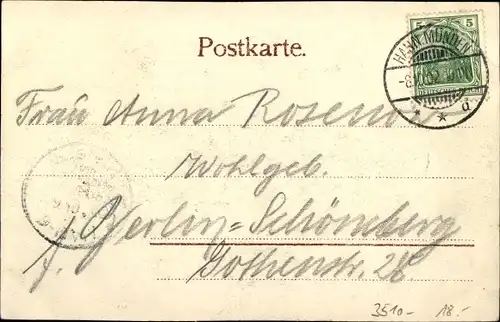 Postkarte.
5 5
HANN. MÜNDEN
d
Frau Anna
Wohlgeb.
Berlin-Schöneberg
Gothenstr.
3510- 18.-